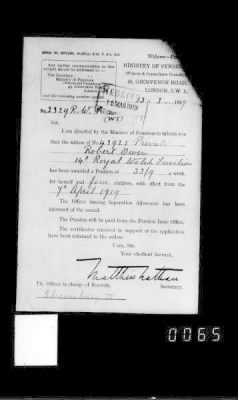 Any further communication on this
subject should be addressed to:—
The Secretary,
Ministry of Pensions
45, Grosvenor Road,
London, S.W. 1.
Widows—
MINISTRY OF PENSIONS
45, GROSVENOR ROAD,
LONDON, S.W. 1.
RECEIVED
15 MAR 1919
13 - 3 - 1919
No 2329 R.W.
Sir,
I am directed by the Minister of Pensions to inform you
that the widow of No 43925 Private
Robert Owen
14th Royal Welsh Fusiliers
has been awarded a Pension of 33/9 a week,
for herself and four children, with effect from the
7th April 1919
The Officer issuing Separation Allowance has been
informed of the award.
The Pension will be paid from the Pension Issue Office.
The certificates received in support of the application
have been returned to the widow.
I am, Sir,
Your obedient Servant,
Matthew Nathan
Secretary.
The Officer in charge of Records,
Shrewsbury
0065